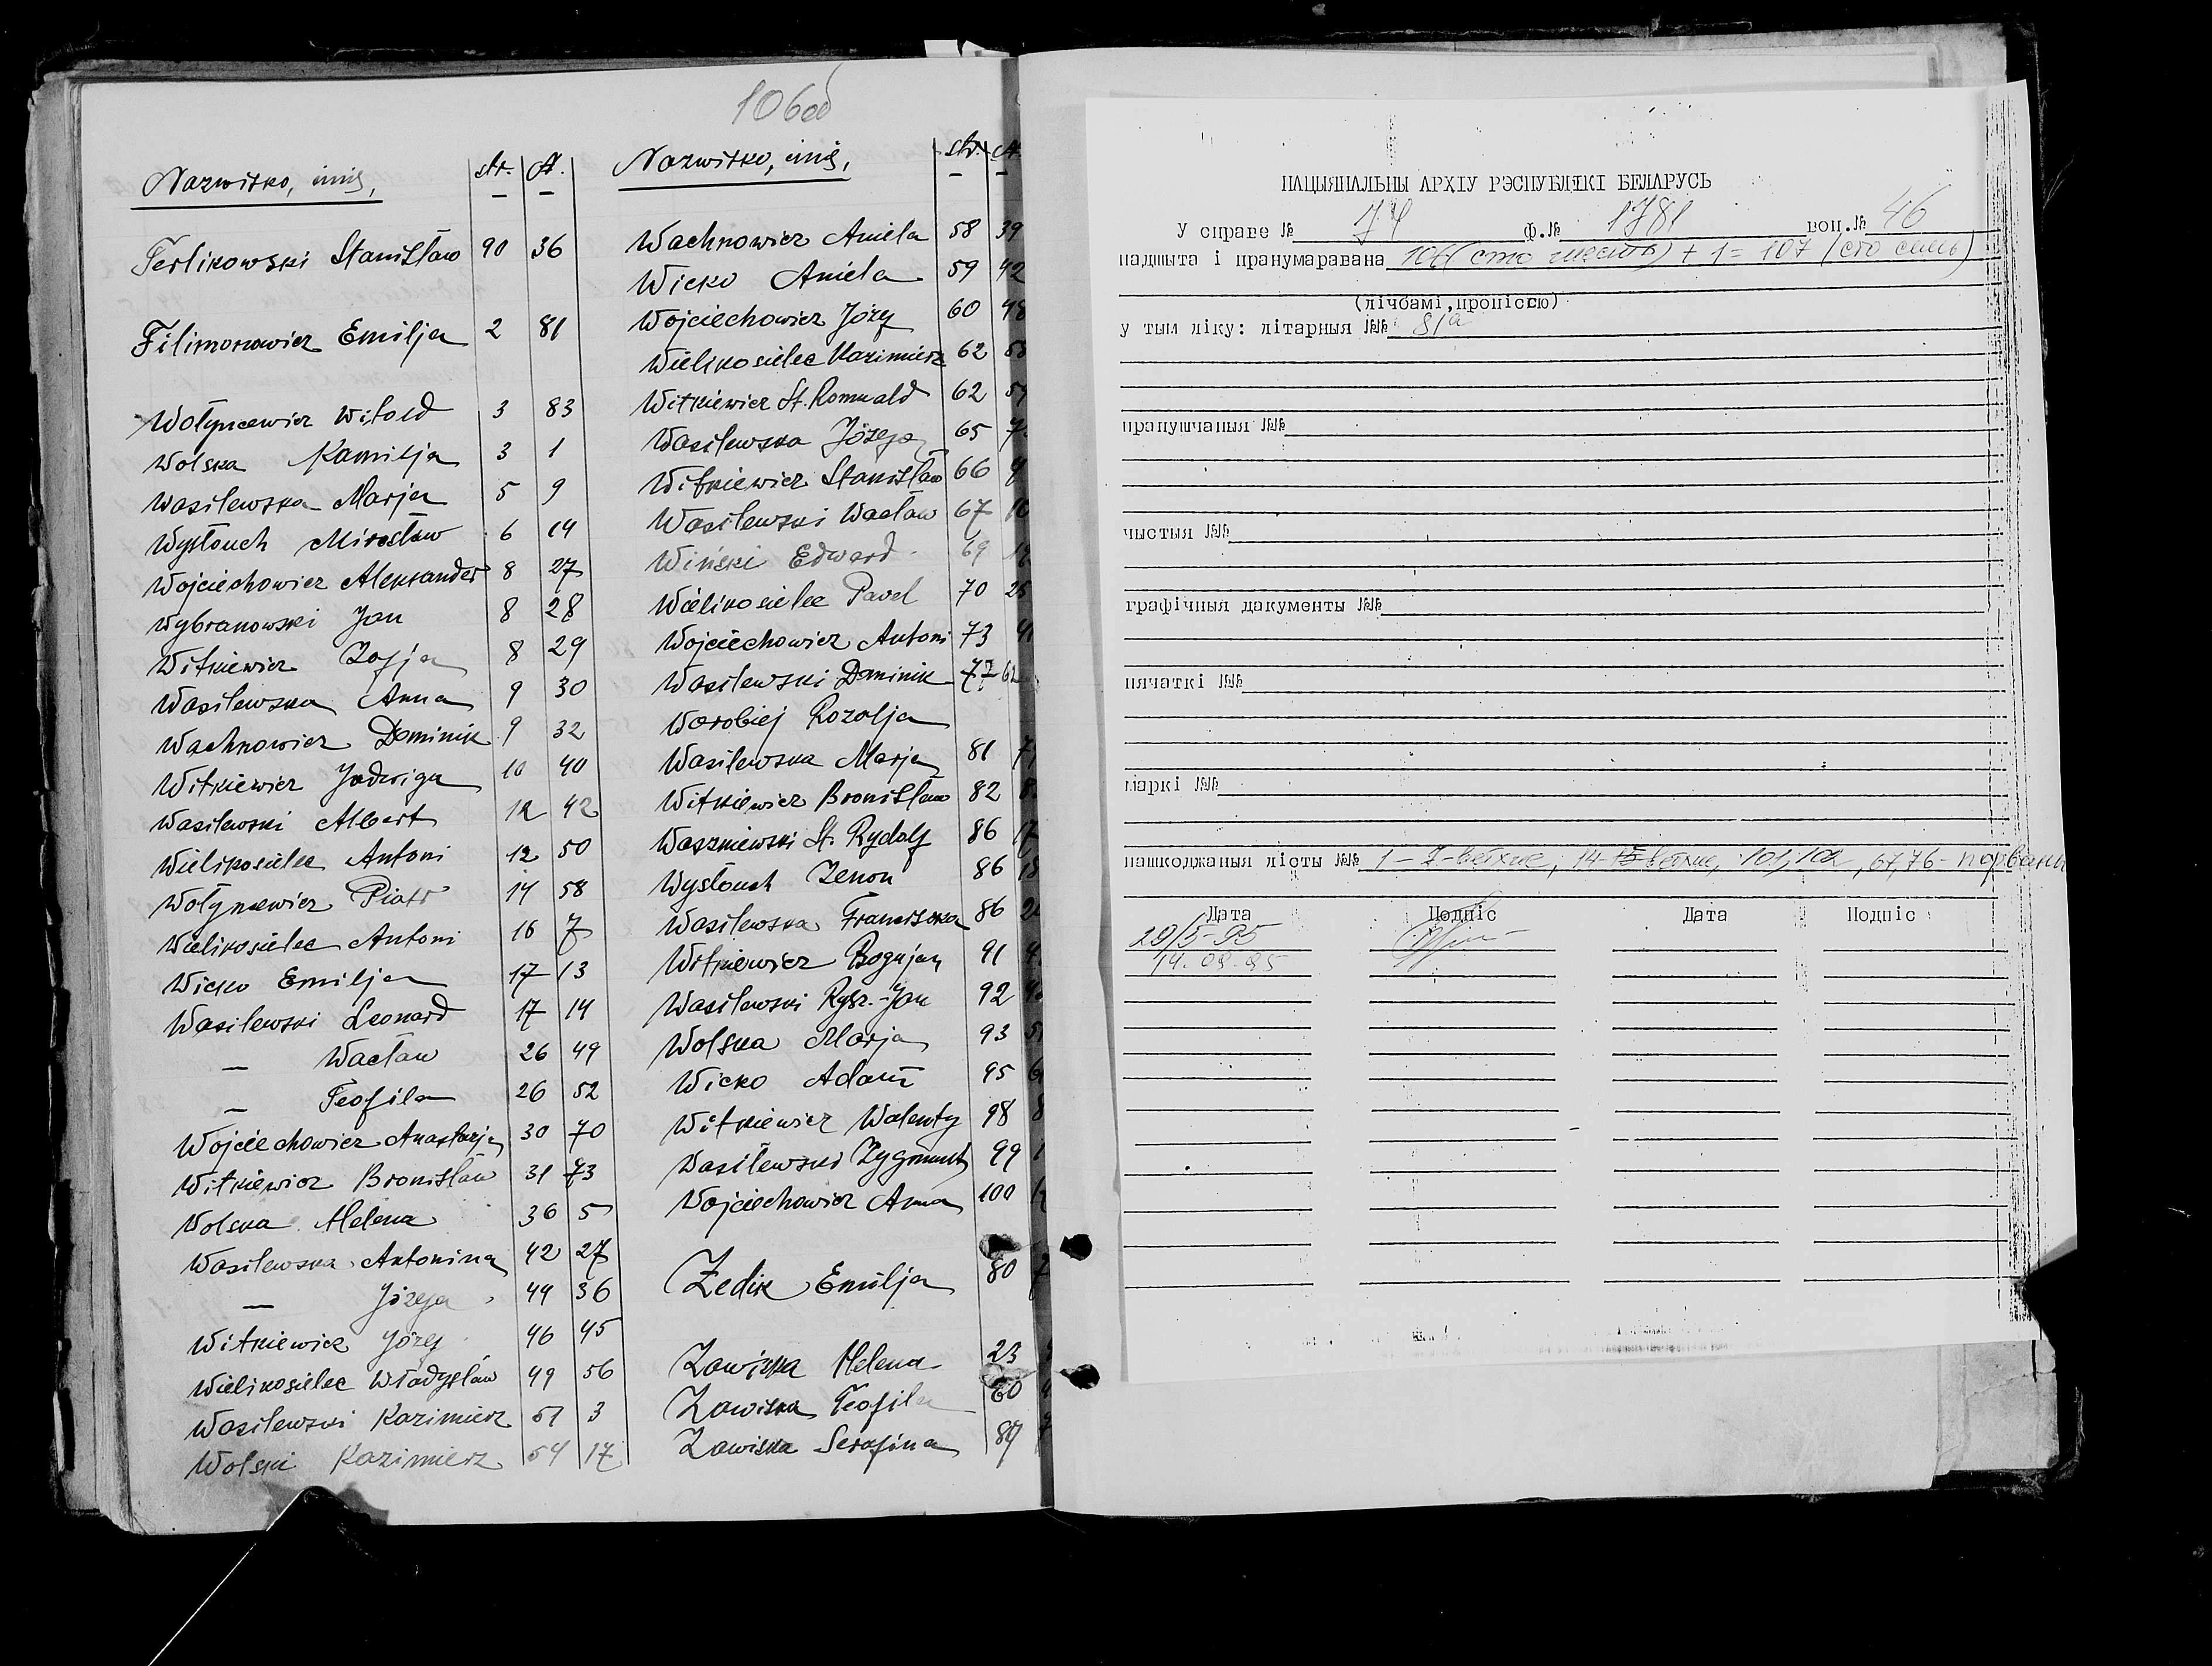 106об
Nazwisko, imię, str. A.
Terlikowski Stanisław 90 36
Filimonowicz Emilja 2 81
Wołyncewicz Witold 3 83
Wolska Kamilja 3 1
Wasilewska Marja 5 9
Wysłouch Mirosław 6 14
Wojciechowicz Aleksander 8 27
Wybranowski Jan 8 28
Witkiewicz Zofja 8 29
Wasilewska Anna 9 30
Wachnowicz Dominik 9 32
Witkiewicz Jadwiga 10 40
Wasilewski Albert 12 42
Wielikosielec Antoni 12 50
Wołyncewicz Piotr 14 58
Wielikosielec Antoni 16 7
Wicko Emilja 17 13
Wasilewski Leonard 17 14
— Wacław 26 49
— Teofila 26 52
Wojciechowicz Anastazja 30 70
Witkiewicz Bronisław 31 73
Wolska Helena 36 5
Wasilewska Antonina 42 27
— Józefa 44 36
Witkiewicz Józef 46 45
Wielikosielec Władysław 49 56
Wasilewski Kazimierz 51 3
Wolski Kazimierz 54 17
Nazwisko, imię, str. A.
Wachnowicz Aniela 58 39
Wicko Aniela 59 42
Wojciechowicz Józef 60 48
Wielikosielec Kazimierz 62
Witkiewicz St. Romuald 62
Wasilewska Józefa 65
Witkiewicz Stanisław 66
Wasilewski Wacław 67
Wiński Edward 69
Wielikosielec Pavel 70 25
Wojciechowicz Antoni 73
Wasilewski Dominik 77 62
Worobiej Rozalja
Wasilewska Marja 81
Witkiewicz Bronisław 82
Waszniewski St. Rydolf 86 17
Wysłouch Zenon 86
Wasilewska Franciszka 86
Witkiewicz Bogujan 91
Wasilewski Rysz.-Jan 92
Wolska Marja 93
Wicko Adam 95
Witkiewicz Walenty 98
Wasilewski Zygmunt 99
Wojciechowicz Anna 100
Zedik Emilja 80
Zawiska Helena 23
Zawiska Teofila 60
Zawiska Serafina 89
НАЦЫЯНАЛЬНЫ АРХІУ РЭСПУБЛІКІ БЕЛАРУСЬ
У справе № 74 ф.№ 1781 воп.№ 46
падшыта і пранумаравана 106 (сто шесть) + 1 = 107 (сто семь)
(лічбамі,пропіссю)
у тым ліку: літарныя №№ 81а
прапушчаныя №№
чыстыя №№
графічныя дакументы №№
пячаткі №№
маркі №№
пашкоджаныя лісты №№ 1-2-ветхие, 14-15 ветхие, 101, 102, 67, 76 - порваны
Дата Подпіс Дата Подпіс
29/5-95
14.09.95